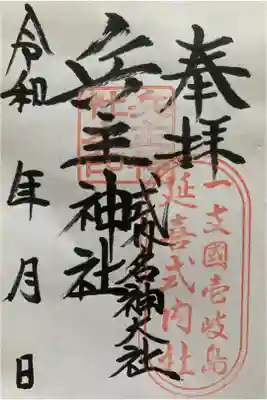 奉拝
一支國壱岐島
延喜式内社
兵主神社
式内名神大社
令和 年 月 日